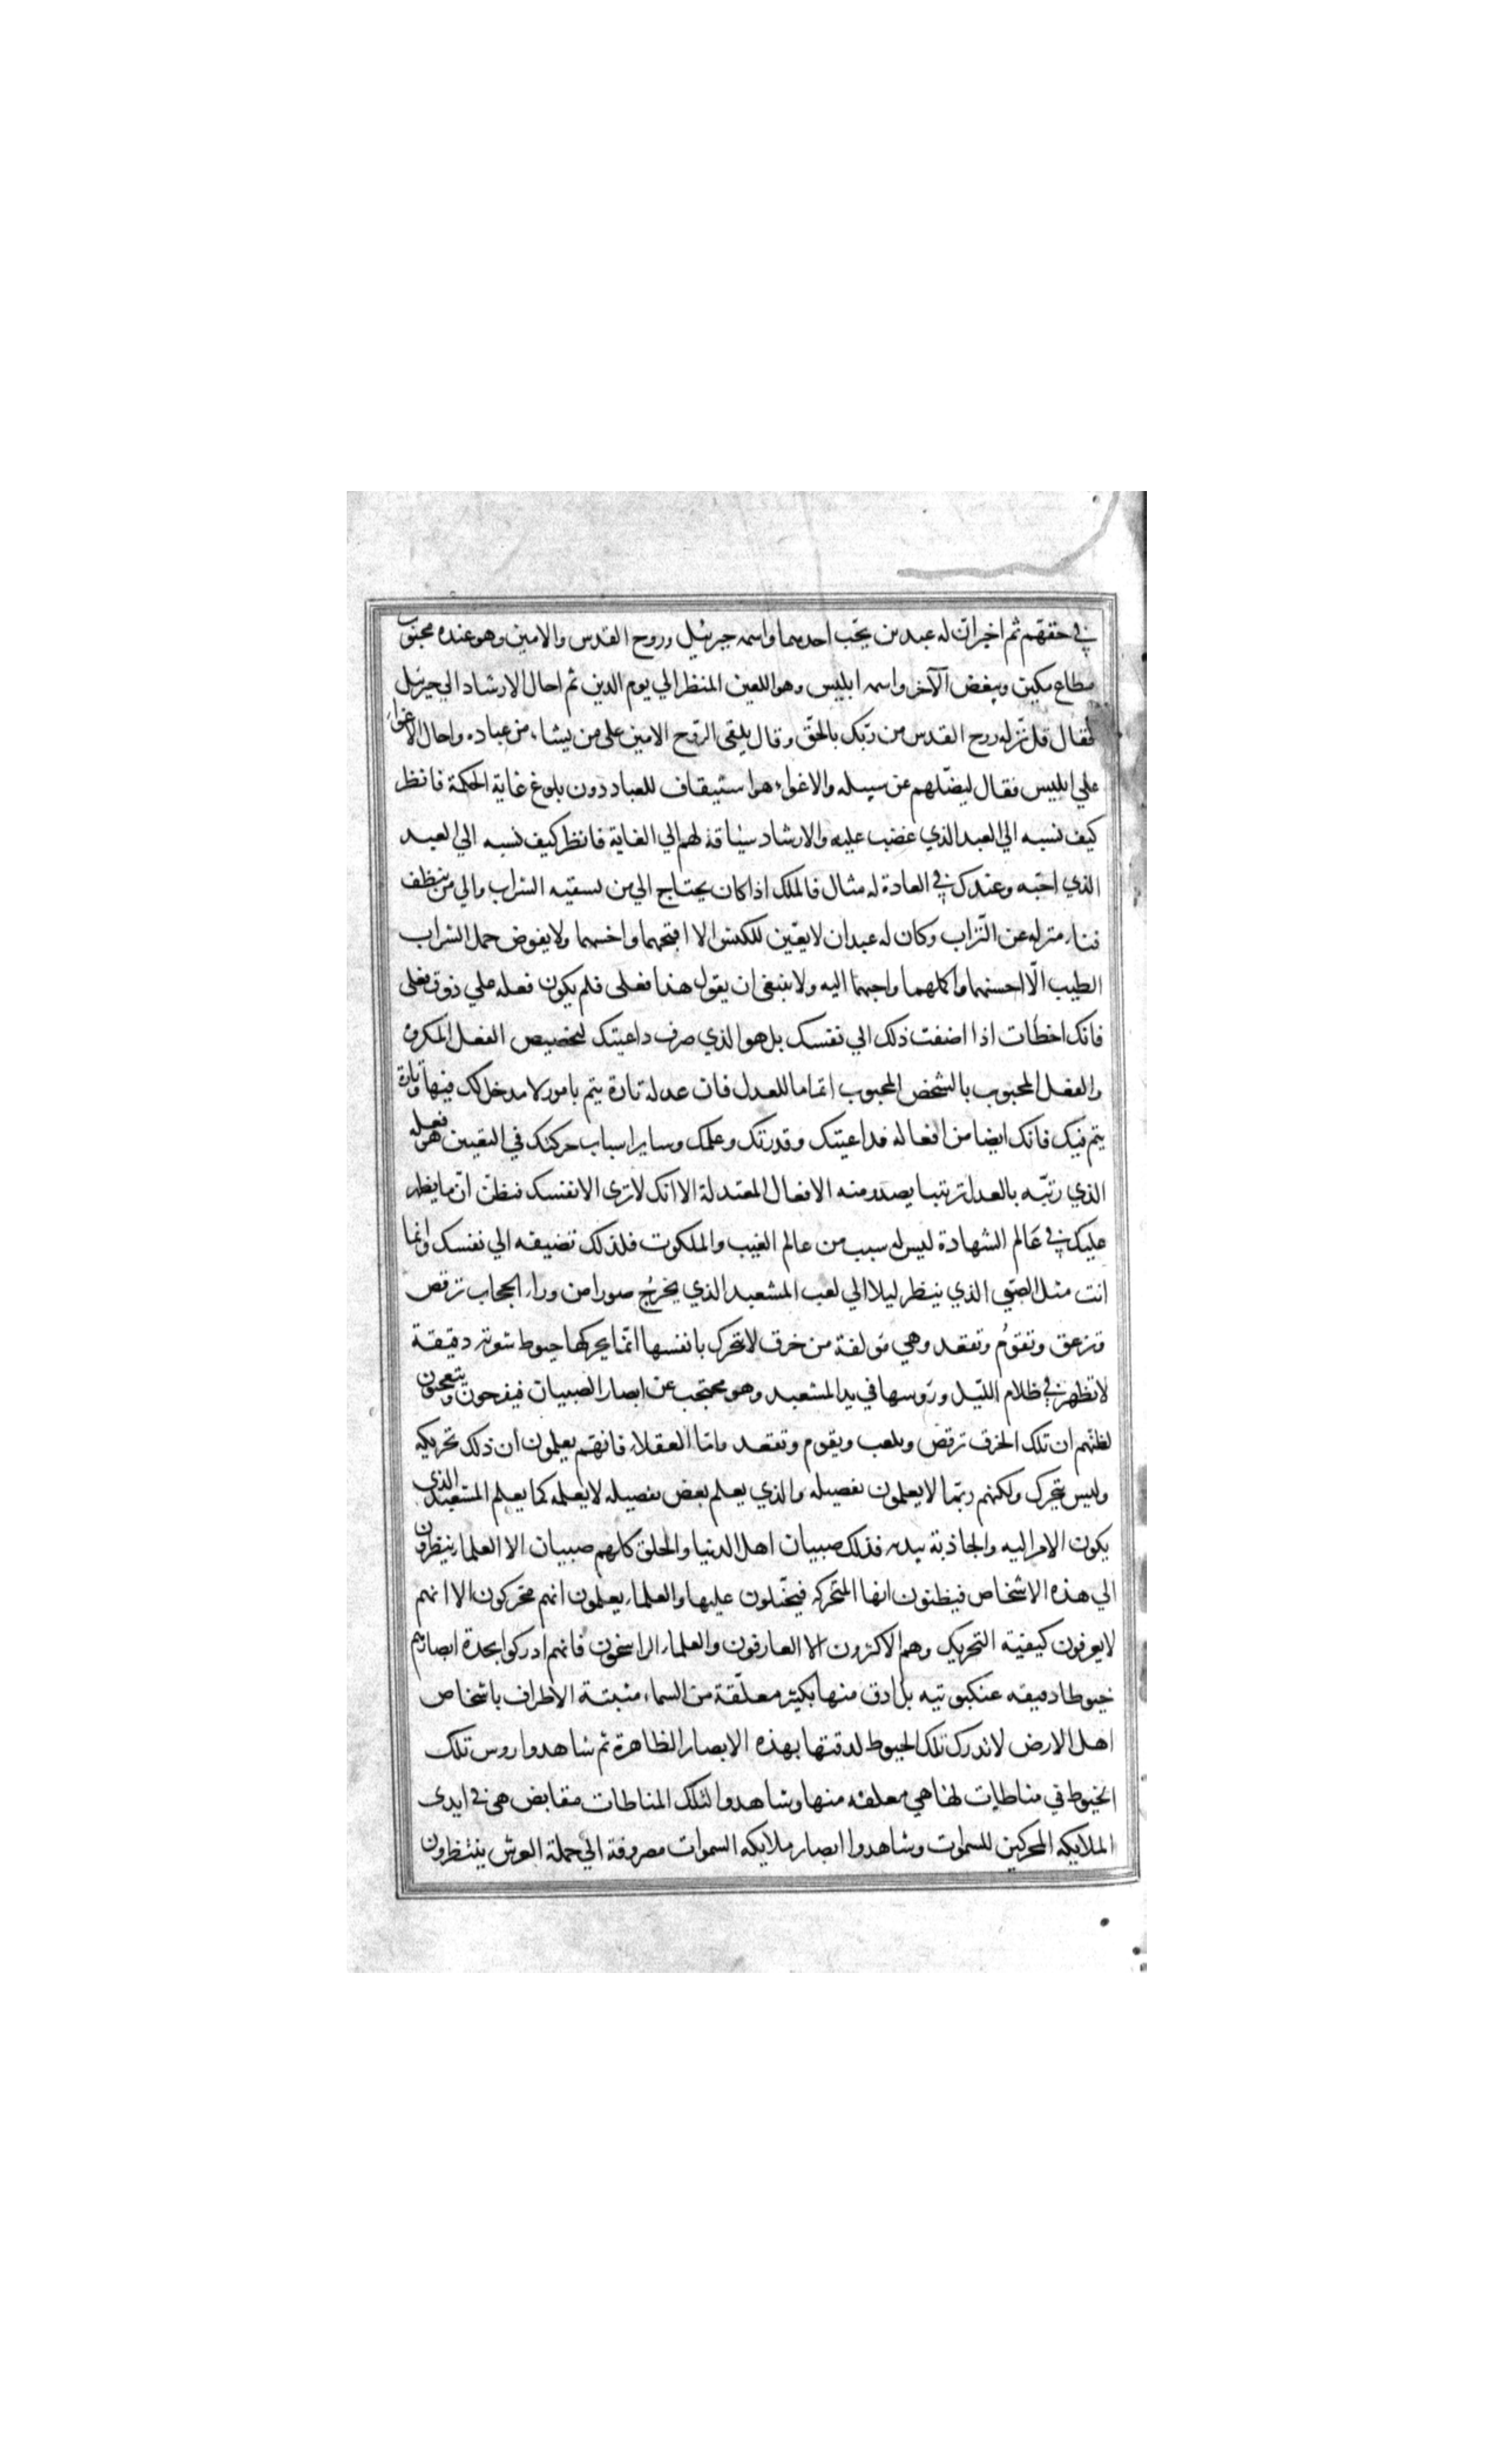 في حقهم ثم اخبر ان له عبدين يحب احدهما واسمه جبرئيل وروح القدس والامين وهو عنده محبوب
مطاع مكين ويبغض الآخر واسمه ابليس وهو اللعين المنظر الي يوم الدين ثم احال الارشاد الي جبرئيل
فقال قل نزله روح القدس من ربّك بالحقّ وقال يلقي الرّوح الامين علي من يشاء من عباده واحال الاغواء
علي ابليس فقال ليضلّهم عن سبيله والاغواء هو استيقاف للعباد دون بلوغ غاية الحكمة فانظر
كيف نسبه الي العبد الذي غضب عليه والارشاد سياقة لهم الي الغاية فانظر كيف نسبه الي العبد
الذي احبّه وعندك في العادة له مثال فالملك اذا كان يحتاج الي من يسقيه الشراب والي من ينظف
فناء منزله عن التّراب وكان له عبدان لا يعيّن للكنس الا اقبحهما واخسهما ولا يفوض حمل الشراب
الطيب الّا احسنهما واكملهما واحبهما اليه ولا ينبغي ان يقول هذا فعلي فلم يكون فعله علي ذوق فعلي
فانك اخطأت اذا اضفت ذلك الي نفسك بل هو الذي صرف داعيتك لتخصيص الفعل المكروه
والفعل المحبوب بالشخص المحبوب اتماما للعدل فان عدله تارة يتم بامور لا مدخل لك فيها وتارة
يتم فيك فانك ايضا من افعاله فداعيتك وقدرتك وعلمك وساير اسباب حركتك في التعيين هو فعله
الذي رتّبه بالعدل ترتيبا يصدر منه الافعال المعتدلة الا انك لا تري الا نفسك فتظنّ انّ ما يظهر
عليك في عَالم الشهادة ليس له سبب من عالم الغيب والملكوت فلذلك تضيفه الي نفسك وانما
انت مثل الصبّي الذي ينظر ليلا الي لعب المشعبد الذي يخرجُ صورا من وراء الحجاب ترقص
وتزعق وتقومُ وتقعد وهي مؤلفة من خرق لا تتحرك بانفسها انّما يحركها خيوط شعرية دقيقة
لا تظهر في ظلام الليّل ورؤسها في يد المشعبد وهو محتجب عن ابصار الصبيان فيفرحون ويتعجبون
لظنّهم ان تلك الخرق ترقص ويلعب ويقوم وتقعد وامّا العقلاء فانهّم يعلمون ان ذلك تحريكه
وليس يتحرك ولكنهم ربّما لا يعلمون تفصيله والذي يعلم بعض تفصيله لا يعلمه كما يعلم المشعبد الذي
يكون الامر اليه والجاذبة بيده فذلك صبيان اهل الدنيا والخلق كلهم صبيان الا العلماء ينظرون
الي هذه الاشخاص فيظنون انها المتحركه فيحيّلون عليها والعلماء يعلمون انهم محركون الا انهم
لا يعرفون كيفية التحريك وهم الاكثرون الا العارفون والعلماء الراسخون فانهم ادركوا بحدة ابصارهم
خيوطا دقيقه عنكبوتيه بل ادق منها بكثير معلّقة من السماء متشبثة الاطراف باشخاص
اهل الارض لا تدرك تلك الخيوط لدقتها بهذه الابصار الظاهرة ثم شاهدوا روس تلك
الخيوط في مناطات لها هي معلقه منها وشاهدوا لتلك المناطات مقابض هي في ايدي
الملايكه المحركين للسموات وشاهدوا ابصار ملايكه السموات مصروفة الي حملة العرش ينتظرون